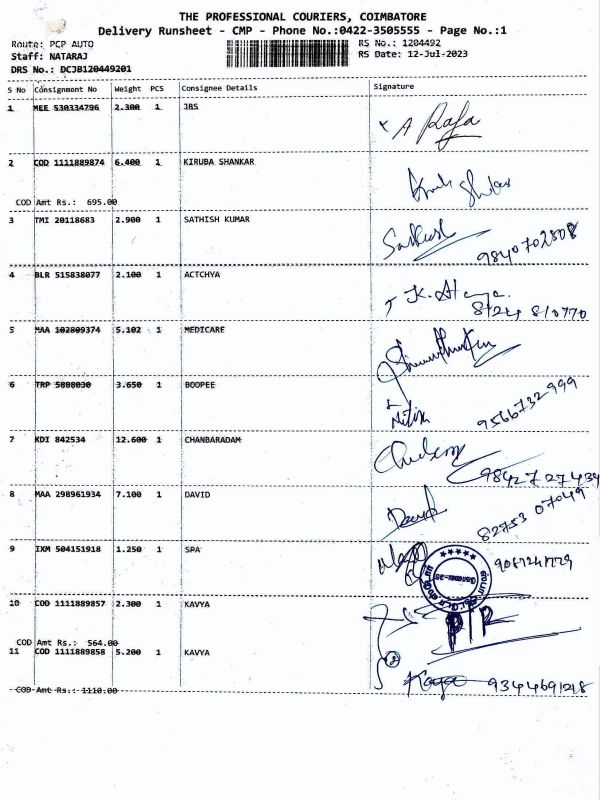 THE PROFESSIONAL COURIERS, COIMBATORE
Delivery Runsheet - CMP - Phone No.:0422-3505555 - Page No.:1
Route: PCP AUTO
RS No.: 1204492
Staff: NATARAJ
RS Date: 12-Jul-2023
DRS No.: DCJB120449201
S No Consignment No Weight PCS Consignee Details Signature
1 MEE 530334796 2.300 1 JBS
A Rafa
2 COD 1111889874 6.400 1 KIRUBA SHANKAR
COD Amt Rs.: 695.00
3 TMI 20118683 2.900 1 SATHISH KUMAR
9840702808
4 BLR 515838077 2.100 1 ACTCHYA
5 MAA 102809374 5.102 1 MEDICARE
6 TRP 5808030 3.650 1 BOOPEE
Nitin 9566732999
7 KDI 842534 12.600 1 CHANBARADAM
9842727439
8 MAA 298961934 7.100 1 DAVID
David 82753 07049
9 IXM 504151918 1.250 1 SPA
10 COD 1111889857 2.300 1 KAVYA
COD Amt Rs.: 564.00
11 COD 1111889858 5.200 1 KAVYA
9344691218
COD Amt Rs.: 1110.00